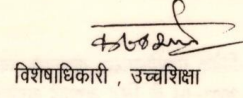 विशेषाधिकारी , उच्चशिक्षा